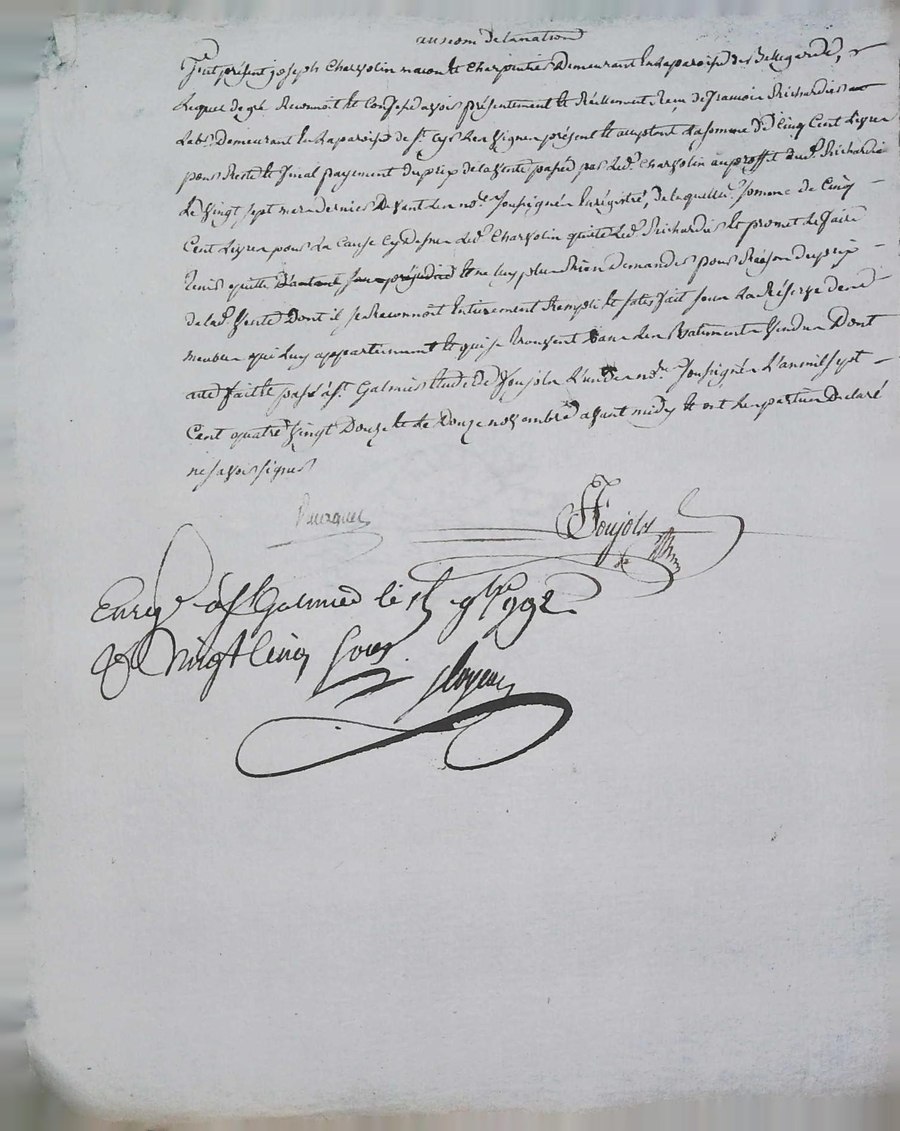 au nom de la nation
Fut présent joseph Charvolin macon et Charpentier Demeurant En la paroisse de Bellegarde,
Lequel de gré Reconnoit et Confesse avoir présentement et Réellement Reçu de francois Richardier
Labr. Demeurant En la paroisse de st. Cyr Les Vignes présent et acceptant La somme de Cinq Cent Livres
pour Reste et final payement du prix de la Vente passée par Led. Charvolin au proffit dud. Richardier
Le Vingt sept mars dernier Devant Les nores. soussignés Enregistré, de laquelle somme de Cinq
Cent Livres pour La Cause Cydessus Led. Charvolin quitte Led. Richardier Et promet Le faire
tenir quitte et ne luy plus Rien demander pour Raison du prix
de lad. Vente Dont il se Reconnoit Entierement Rempli et satisfait sous La Réserve de
meubles qui luy appartiennent et qui se trouvent dans Les Batiments Vendus Dont
acte fait et passé à st. Galmier Etude de foujols L'un des nores. soussignés L'an mil sept
Cent quatre Vingt Douze et le Douze novembre avant midy et ont Les parties Déclaré
ne savoir signer
foujols
Enregé. à st Galmier le 9bre 1792
Vingt Cinq sous